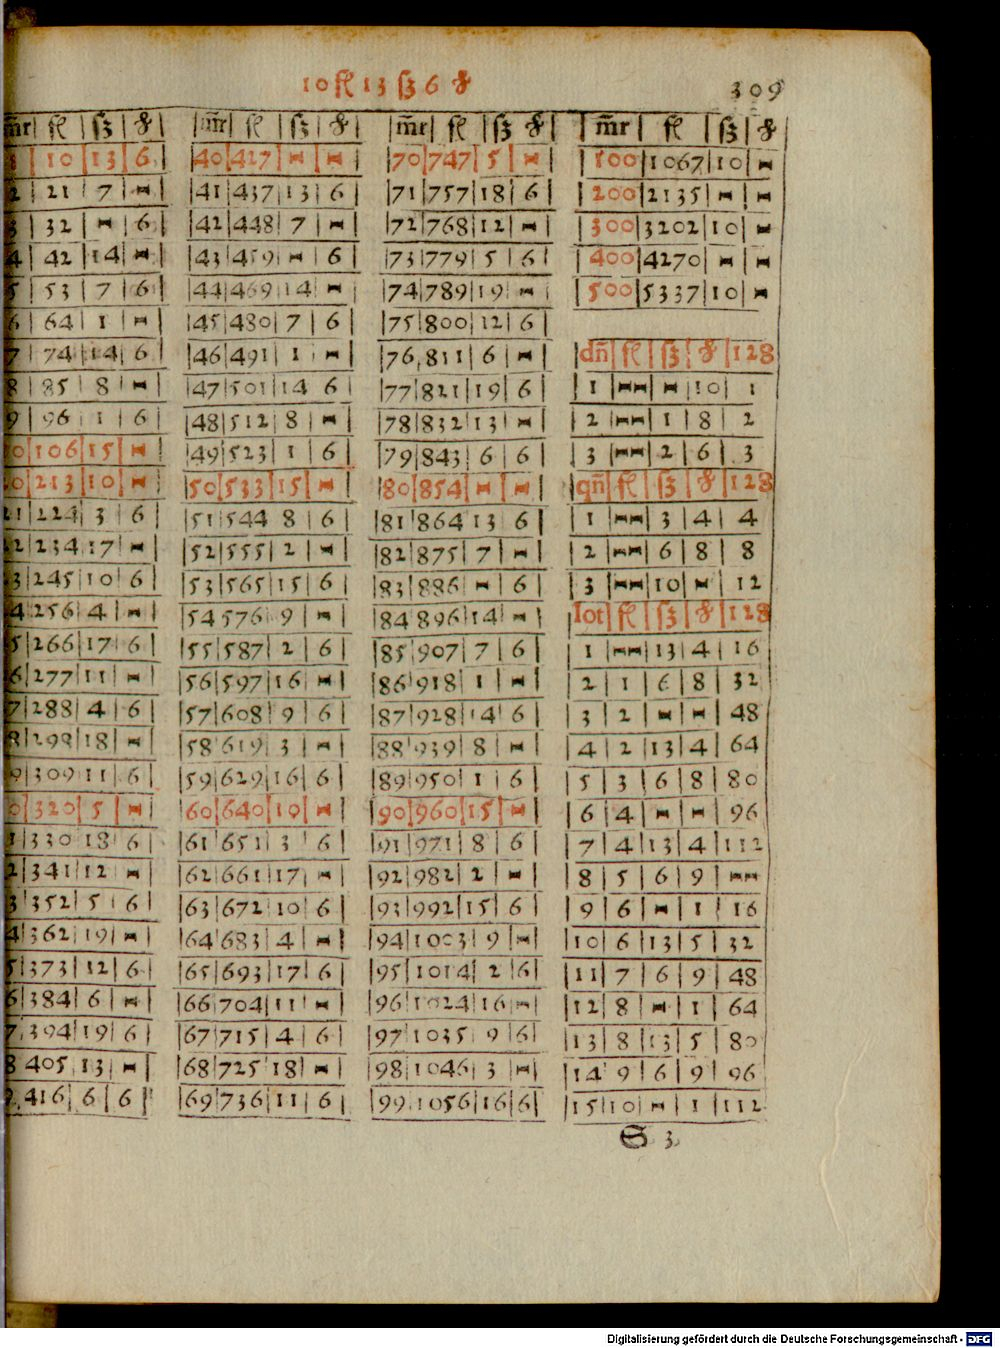 10 fl 13 ß 6 ₰
309
m̄r | fl | ß | ₰
10 | 13 | 6
2 | 21 | 7 | ⧓
3 | 32 | ⧓ | 6
4 | 42 | 14 | ⧓
5 | 53 | 7 | 6
6 | 64 | 1 | ⧓
7 | 74 | 14 | 6
8 | 85 | 8 | ⧓
9 | 96 | 1 | 6
0 | 106 | 15 | ⧓
0 | 213 | 10 | ⧓
21 | 224 | 3 | 6
22 | 234 | 17 | ⧓
23 | 245 | 10 | 6
4 | 256 | 4 | ⧓
5 | 266 | 17 | 6
6 | 277 | 11 | ⧓
7 | 288 | 4 | 6
8 | 298 | 18 | ⧓
9 | 309 | 11 | 6
0 | 320 | 5 | ⧓
1 | 330 | 18 | 6
2 | 341 | 12 | ⧓
3 | 352 | 5 | 6
4 | 362 | 19 | ⧓
5 | 373 | 12 | 6
6 | 384 | 6 | ⧓
7 | 394 | 19 | 6
8 | 405 | 13 | ⧓
9 | 416 | 6 | 6
m̄r | fl | ß | ₰
40 | 427 | ⧓ | ⧓
41 | 437 | 13 | 6
42 | 448 | 7 | ⧓
43 | 459 | ⧓ | 6
44 | 469 | 14 | ⧓
45 | 480 | 7 | 6
46 | 491 | 1 | ⧓
47 | 501 | 14 | 6
48 | 512 | 8 | ⧓
49 | 523 | 1 | 6
50 | 533 | 15 | ⧓
51 | 544 | 8 | 6
52 | 555 | 2 | ⧓
53 | 565 | 15 | 6
54 | 576 | 9 | ⧓
55 | 587 | 2 | 6
56 | 597 | 16 | ⧓
57 | 608 | 9 | 6
58 | 619 | 3 | ⧓
59 | 629 | 16 | 6
60 | 640 | 10 | ⧓
61 | 651 | 3 | 6
62 | 661 | 17 | ⧓
63 | 672 | 10 | 6
64 | 683 | 4 | ⧓
65 | 693 | 17 | 6
66 | 704 | 11 | ⧓
67 | 715 | 4 | 6
68 | 725 | 18 | ⧓
69 | 736 | 11 | 6
m̄r | fl | ß | ₰
70 | 747 | 5 | ⧓
71 | 757 | 18 | 6
72 | 768 | 12 | ⧓
73 | 779 | 5 | 6
74 | 789 | 19 | ⧓
75 | 800 | 12 | 6
76 | 811 | 6 | ⧓
77 | 821 | 19 | 6
78 | 832 | 13 | ⧓
79 | 843 | 6 | 6
80 | 854 | ⧓ | ⧓
81 | 864 | 13 | 6
82 | 875 | 7 | ⧓
83 | 886 | ⧓ | 6
84 | 896 | 14 | ⧓
85 | 907 | 7 | 6
86 | 918 | 1 | ⧓
87 | 928 | 14 | 6
88 | 939 | 8 | ⧓
89 | 950 | 1 | 6
90 | 960 | 15 | ⧓
91 | 971 | 8 | 6
92 | 982 | 2 | ⧓
93 | 992 | 15 | 6
94 | 1003 | 9 | ⧓
95 | 1014 | 2 | 6
96 | 1024 | 16 | ⧓
97 | 1035 | 9 | 6
98 | 1046 | 3 | ⧓
99 | 1056 | 16 | 6
m̄r | fl | ß | ₰
100 | 1067 | 10 | ⧓
200 | 2135 | ⧓ | ⧓
300 | 3202 | 10 | ⧓
400 | 4270 | ⧓ | ⧓
500 | 5337 | 10 | ⧓
dn̄ | fl | ß | ₰ | 128
1 | ⧓⧓ | ⧓ | 10 | 1
2 | ⧓⧓ | 1 | 8 | 2
3 | ⧓⧓ | 2 | 6 | 3
qn̄ | fl | ß | ₰ | 128
1 | ⧓⧓ | 3 | 4 | 4
2 | ⧓⧓ | 6 | 8 | 8
3 | ⧓⧓ | 10 | ⧓ | 12
Lot | fl | ß | ₰ | 128
1 | ⧓⧓ | 13 | 4 | 16
2 | 1 | 6 | 8 | 32
3 | 2 | ⧓ | ⧓ | 48
4 | 2 | 13 | 4 | 64
5 | 3 | 6 | 8 | 80
6 | 4 | ⧓ | ⧓ | 96
7 | 4 | 13 | 4 | 112
8 | 5 | 6 | 9 | ⧓⧓
9 | 6 | ⧓ | 1 | 16
10 | 6 | 13 | 5 | 32
11 | 7 | 6 | 9 | 48
12 | 8 | ⧓ | 1 | 64
13 | 8 | 13 | 5 | 80
14 | 9 | 6 | 9 | 96
15 | 10 | ⧓ | 1 | 112
S 3
Digitalisierung gefördert durch die Deutsche Forschungsgemeinschaft - DFG